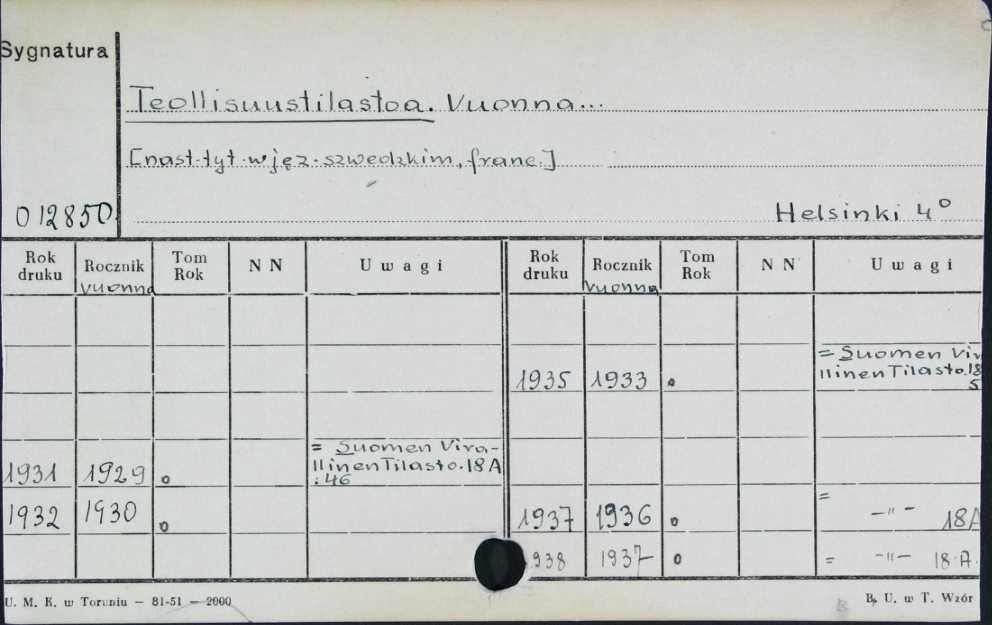 Sygnatura
Teollisuustilastoa. Vuonna...
[nast. tyt. w jęz. szwedzkim, franc.]
012850
Helsinki 4°
Rok druku Rocznik Tom Rok N N Uwagi Rok druku Rocznik Tom Rok N N Uwagi
vuonna vuonna
= Suomen Vir
1935 1933 o llinen Tilasto. 18
5
= Suomen Vira-
1931 1929 o llinen Tilasto. 18 A
: 46
1932 1930 o 1937 1936 o = -"- 18A
938 1937 o = -"- 18.A.
U. M. K. w Toruniu — 81-51 — 2000
B. U. w T. Wzór